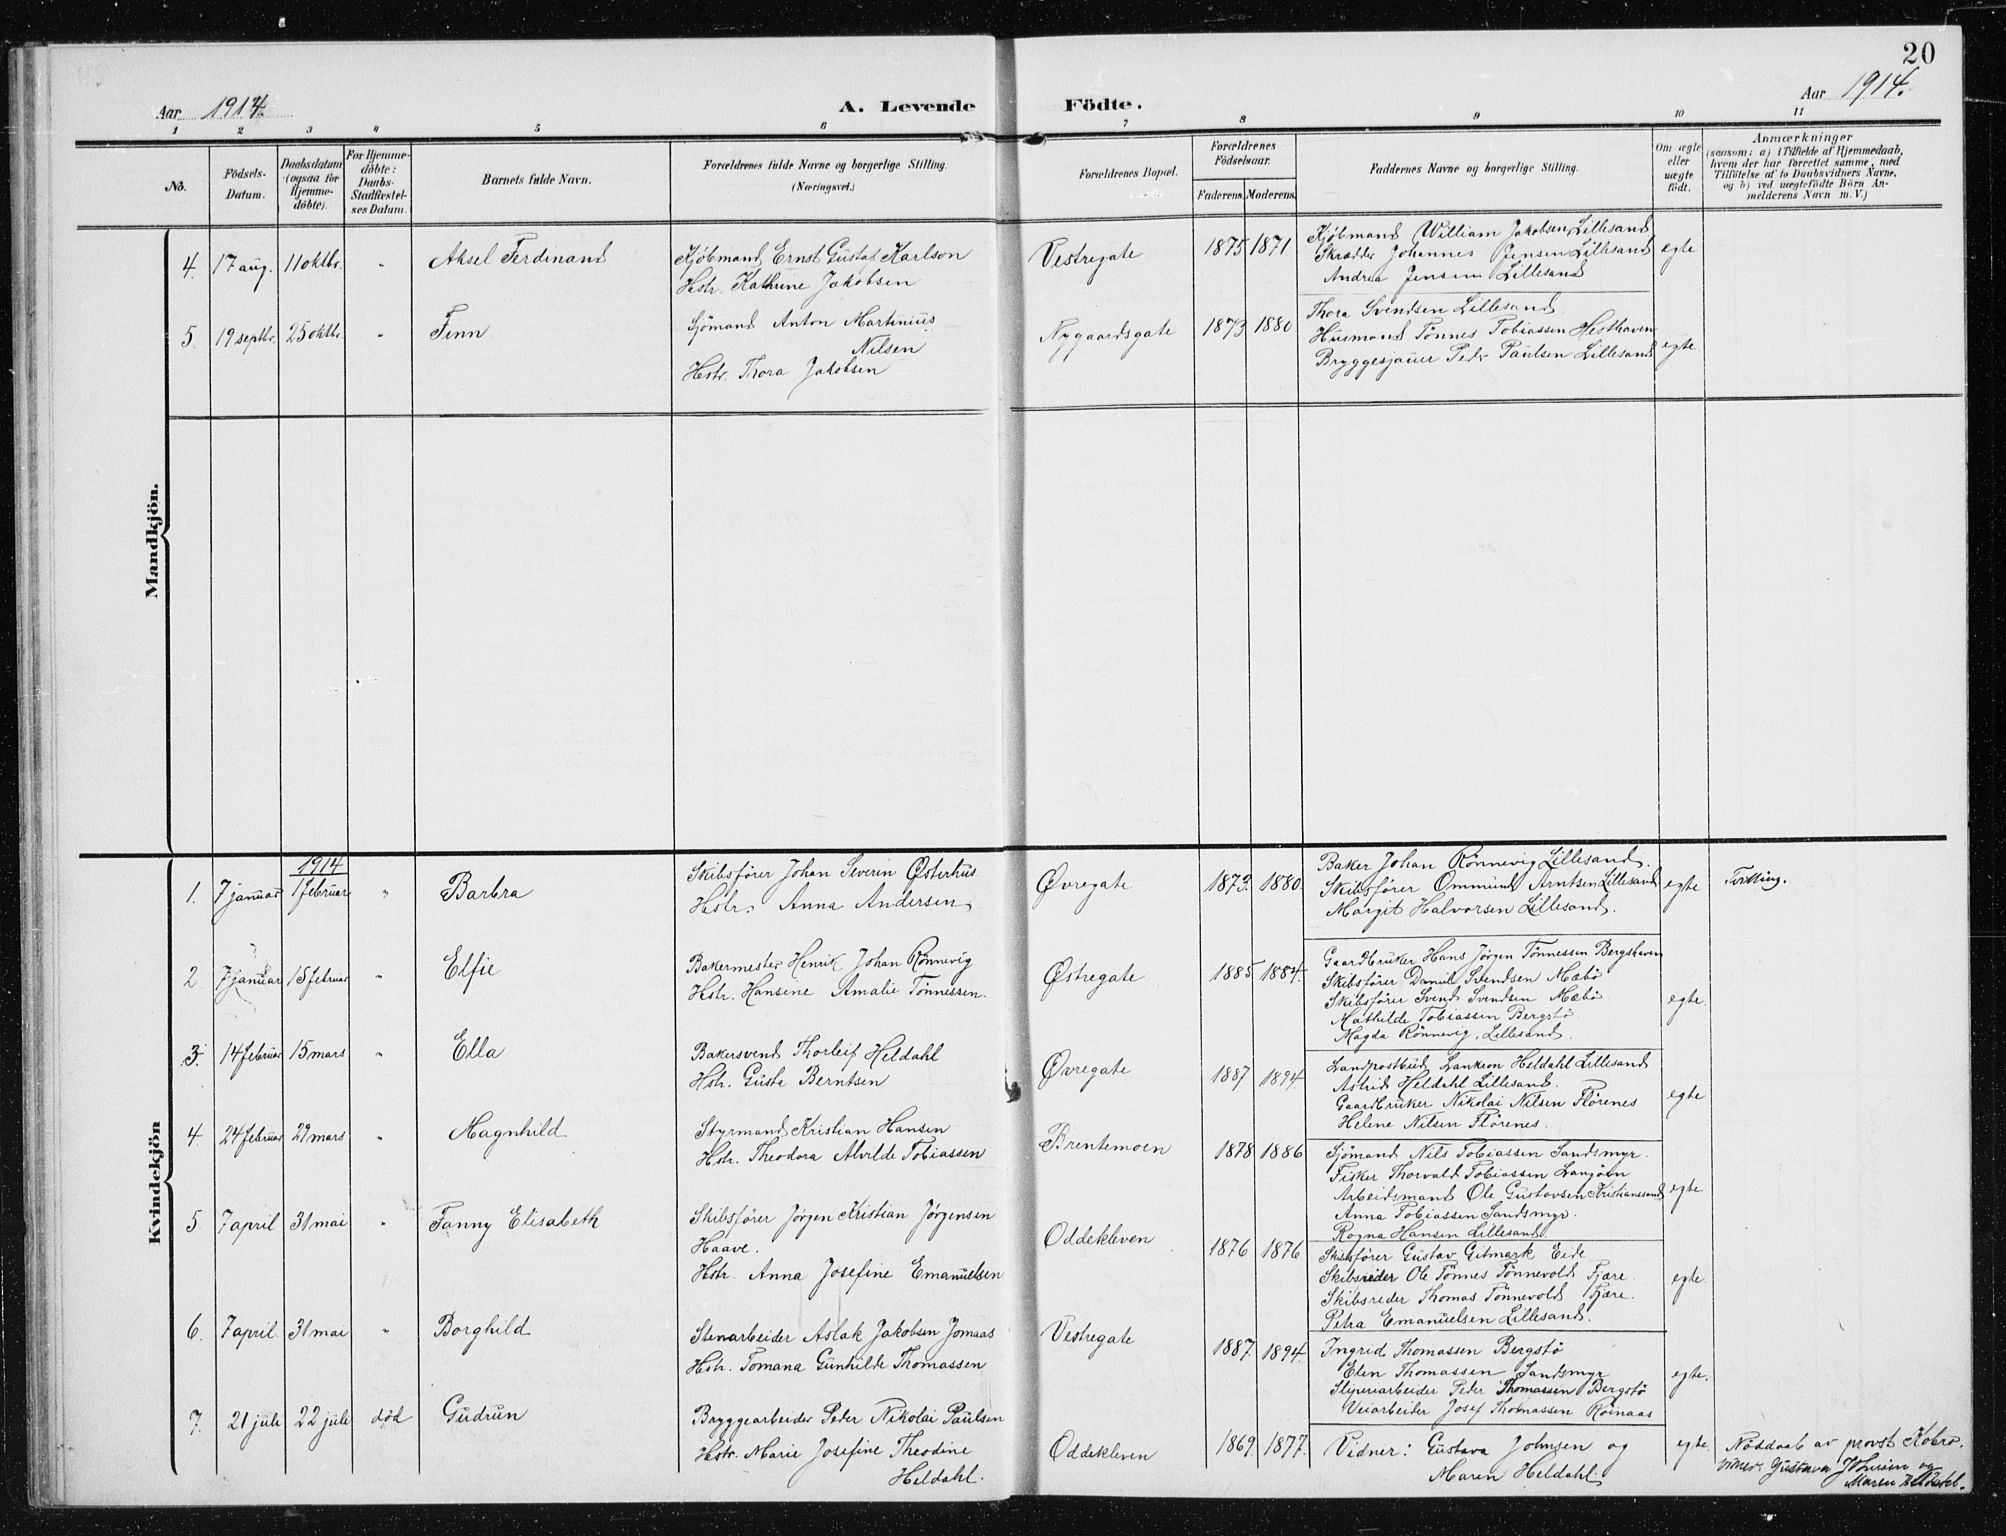 20
Aar 1914. A. Levende Födte. Aar 1914.
1 2 3 4 5 6 7 8 9 10 11
No.
Födsels-Datum.
Daabsdatum (ogsaa for Hjemme-döbte).
For Hjemme-döbte: Daabs-Stadfæstel-ses Datum.
Barnets fulde Navn.
Forældrenes fulde Navne og borgerlige Stilling.
(Næringsvei.)
Forældrenes Bopæl.
Forældrenes Födselsaar.
Faderens. Moderens.
Faddernes Navne og borgerlige Stilling.
Om ægte eller uægte födt.
Anmærkninger
(saasom: a) i Tilfælde af Hjemmedaab,
hvem der har forrettet samme, med
Tilföielse af to Daabsvidners Navne.
og b) ved uægtefödte Börn An-
melderens Navn m. V.)
Mandkjön.
4. 17 aug. 11 oktbr. " Aksel Ferdinand
Kjöbmand Ernst Gustaf Karlson
Hstr. Kathrine Jakobsen
Vestregate 1875 1871
Kjöbmand William Jakobsen, Lillesand
Skrædder Johannes Jensen Lillesand
Andrea Jensen Lillesand
egte
5. 19 septbr. 25 oktbr. " Finn
Sjömand Anton Martinius
Nilsen
Hstr. Thora Jakobsen
Nygaardsgate 1873 1880
Thora Svendsen Lillesand
Husmand Tönnes Tobiassen Hesthaven
Bryggesjauer Peder Paulsen Lillesand
egte
Kvindekjön
1914
1. 7 januar 1 februar " Barbra
Skibsförer Johan Severin Østerhus
Hstr. Anna Andersen
Øvregate 1873. 1880.
Baker Johan Rönnevig Lillesand.
Skibsförer Ommund Arntsen Lillesand
Margit Halvorsen Lillesand.
egte Tvilling.
2 7 januar 15 februar " Elfie
Bakermester Henrik Johan Rönnevig
Hstr. Hansine Amalie Tönnessen.
Østregate 1885 1884.
Gaardbruker Hans Jörgen Tönnessen Bergshaven
Skibsförer Daniel Svendsen Mæbö
Skibsförer Svend Svendsen Mæbö.
Mathilde Tobiassen Bergstö
Magda Rönnevig, Lillesand.
egte.
3. 14 februar 15 mars " Ella
Bakersvend Thorleif Heldahl
Hstr. Gusta Berntsen
Øvregate 1887 1894
Landpostbud Heldahl Lillesand
Astrid Heldahl Lillesand.
Gaardbruker Nikolai Nilsen Flörenes
Helene Nilsen Flörenes.
egte
4. 24 februar 29 mars " Magnhild
Styrmand Kristian Hansen
Hstr. Theodora Alvilde Tobiassen
Brentemoen 1878 1886
Sjömand Nils Tobiassen Sandsmyr.
Fisker Thorvald Tobiassen
Arbeidsmand Ole Gustavsen Kristianssand
Anna Tobiassen Sandsmyr.
Rogna Hansen Lillesand.
egte
5 7 april 31 mai " Fanny Elisabeth
Skibsförer Jörgen Kristian Jörgensen
Haave.
Hstr. Anna Josefine Emanuelsen
Oddekleven 1876 1876
Skibsförer Gustav Gitmark Eide
Skibsreder Ole Tönnes Tönnevold Fjære.
Skibsreder Thomas Tönnevold Fjære.
Petra Emanuelsen Lillesand.
egte.
6. 7 april. 31 mai " Borghild
Stenarbeider Aslak Jakobsen Jomaas
Hstr. Tomana Gunhilde Thomassen
Vestregate 1887. 1894.
Ingrid Thomassen Bergstö
Elen Thomassen Sandsmyr
Sliperiarbeider Peder Thomassen Bergstö
Veiarbeider Josef Thomassen Röinaas
egte.
7. 21 juli 22 juli död Gudrun
Bryggearbeider Peder Nikolai Paulsen
Hstr. Marie Josefine Theodine
Heldahl.
Oddekleven 1869 1877.
Vidner: Gustava Johnsen og
Maren Heldahl.
egte. Nöddaab av provst Kobro.
vidner: Gustava Johnsen og
Maren Heldahl.